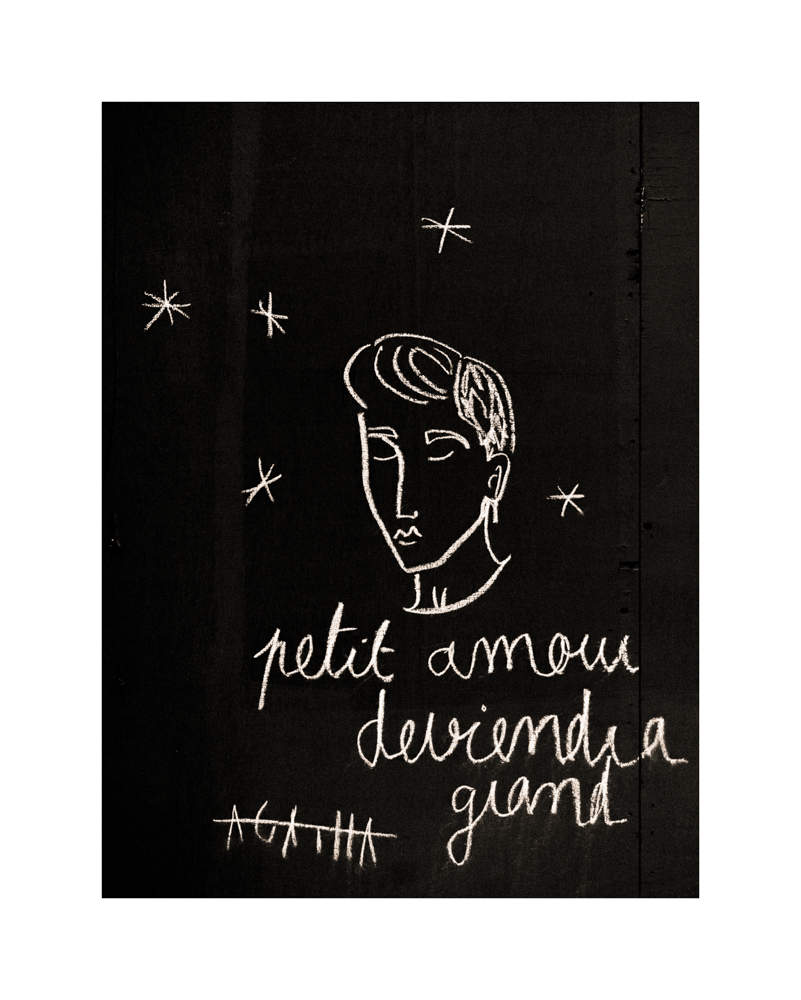 petit amour
deviendra
grand
AGATHA